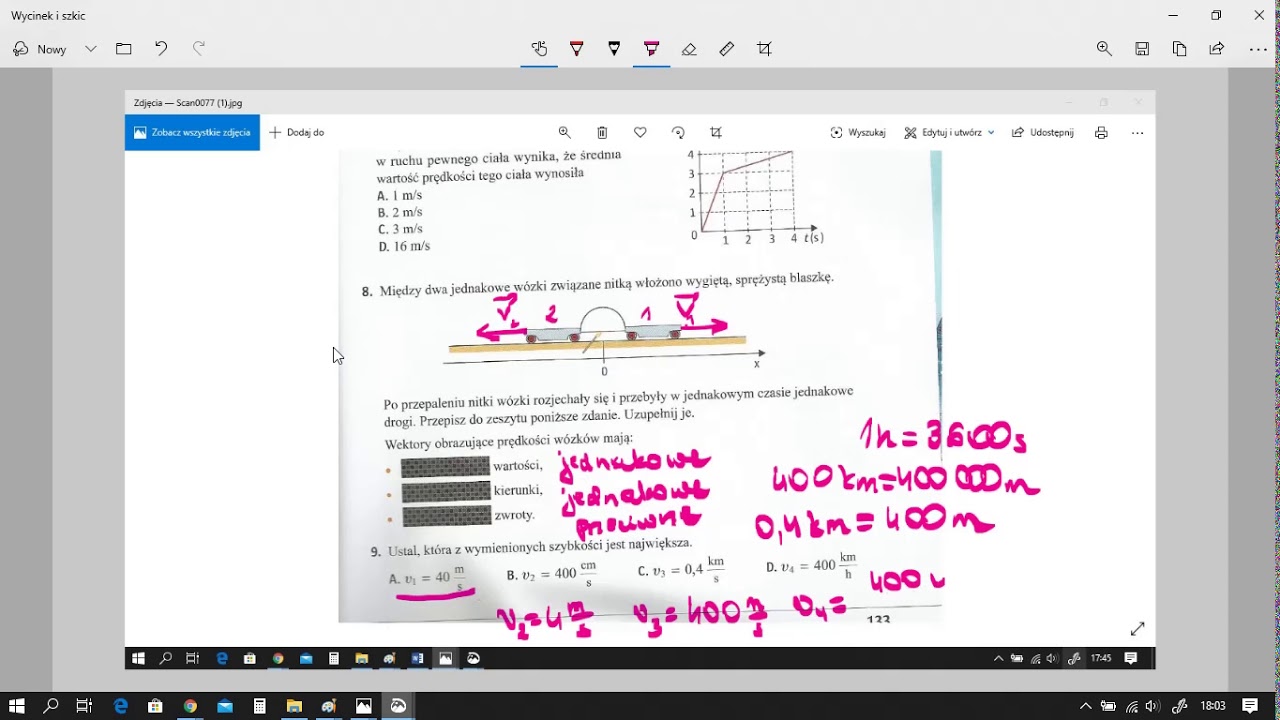 Wycinek i szkic
Nowy
Zdjęcia — Scan0077 (1).jpg
Zobacz wszystkie zdjęcia
Dodaj do
Wyszukaj
Edytuj i utwórz
Udostępnij
w ruchu pewnego ciała wynika, że średnia
wartość prędkości tego ciała wynosiła
A. 1 m/s
B. 2 m/s
C. 3 m/s
D. 16 m/s
4
3
2
1
0
1 2 3 4 t(s)
8. Między dwa jednakowe wózki związane nitką włożono wygiętą, sprężystą blaszkę.
V₂ 2 1 V₁
0
x
Po przepaleniu nitki wózki rozjechały się i przebyły w jednakowym czasie jednakowe
drogi. Przepisz do zeszytu poniższe zdanie. Uzupełnij je.
Wektory obrazujące prędkości wózków mają:
wartości, jednakowe
kierunki, jednakowe
zwroty. przeciwne
1h = 3600s
400 km = 400 000 m
0,4 km = 400 m
9. Ustal, która z wymienionych szybkości jest największa.
A. v₁ = 40 m/s B. v₂ = 400 cm/s C. v₃ = 0,4 km/s D. v₄ = 400 km/h
v₂ = 4 m/s v₃ = 400 m/s v₄ = 400
133
17:45
18:03